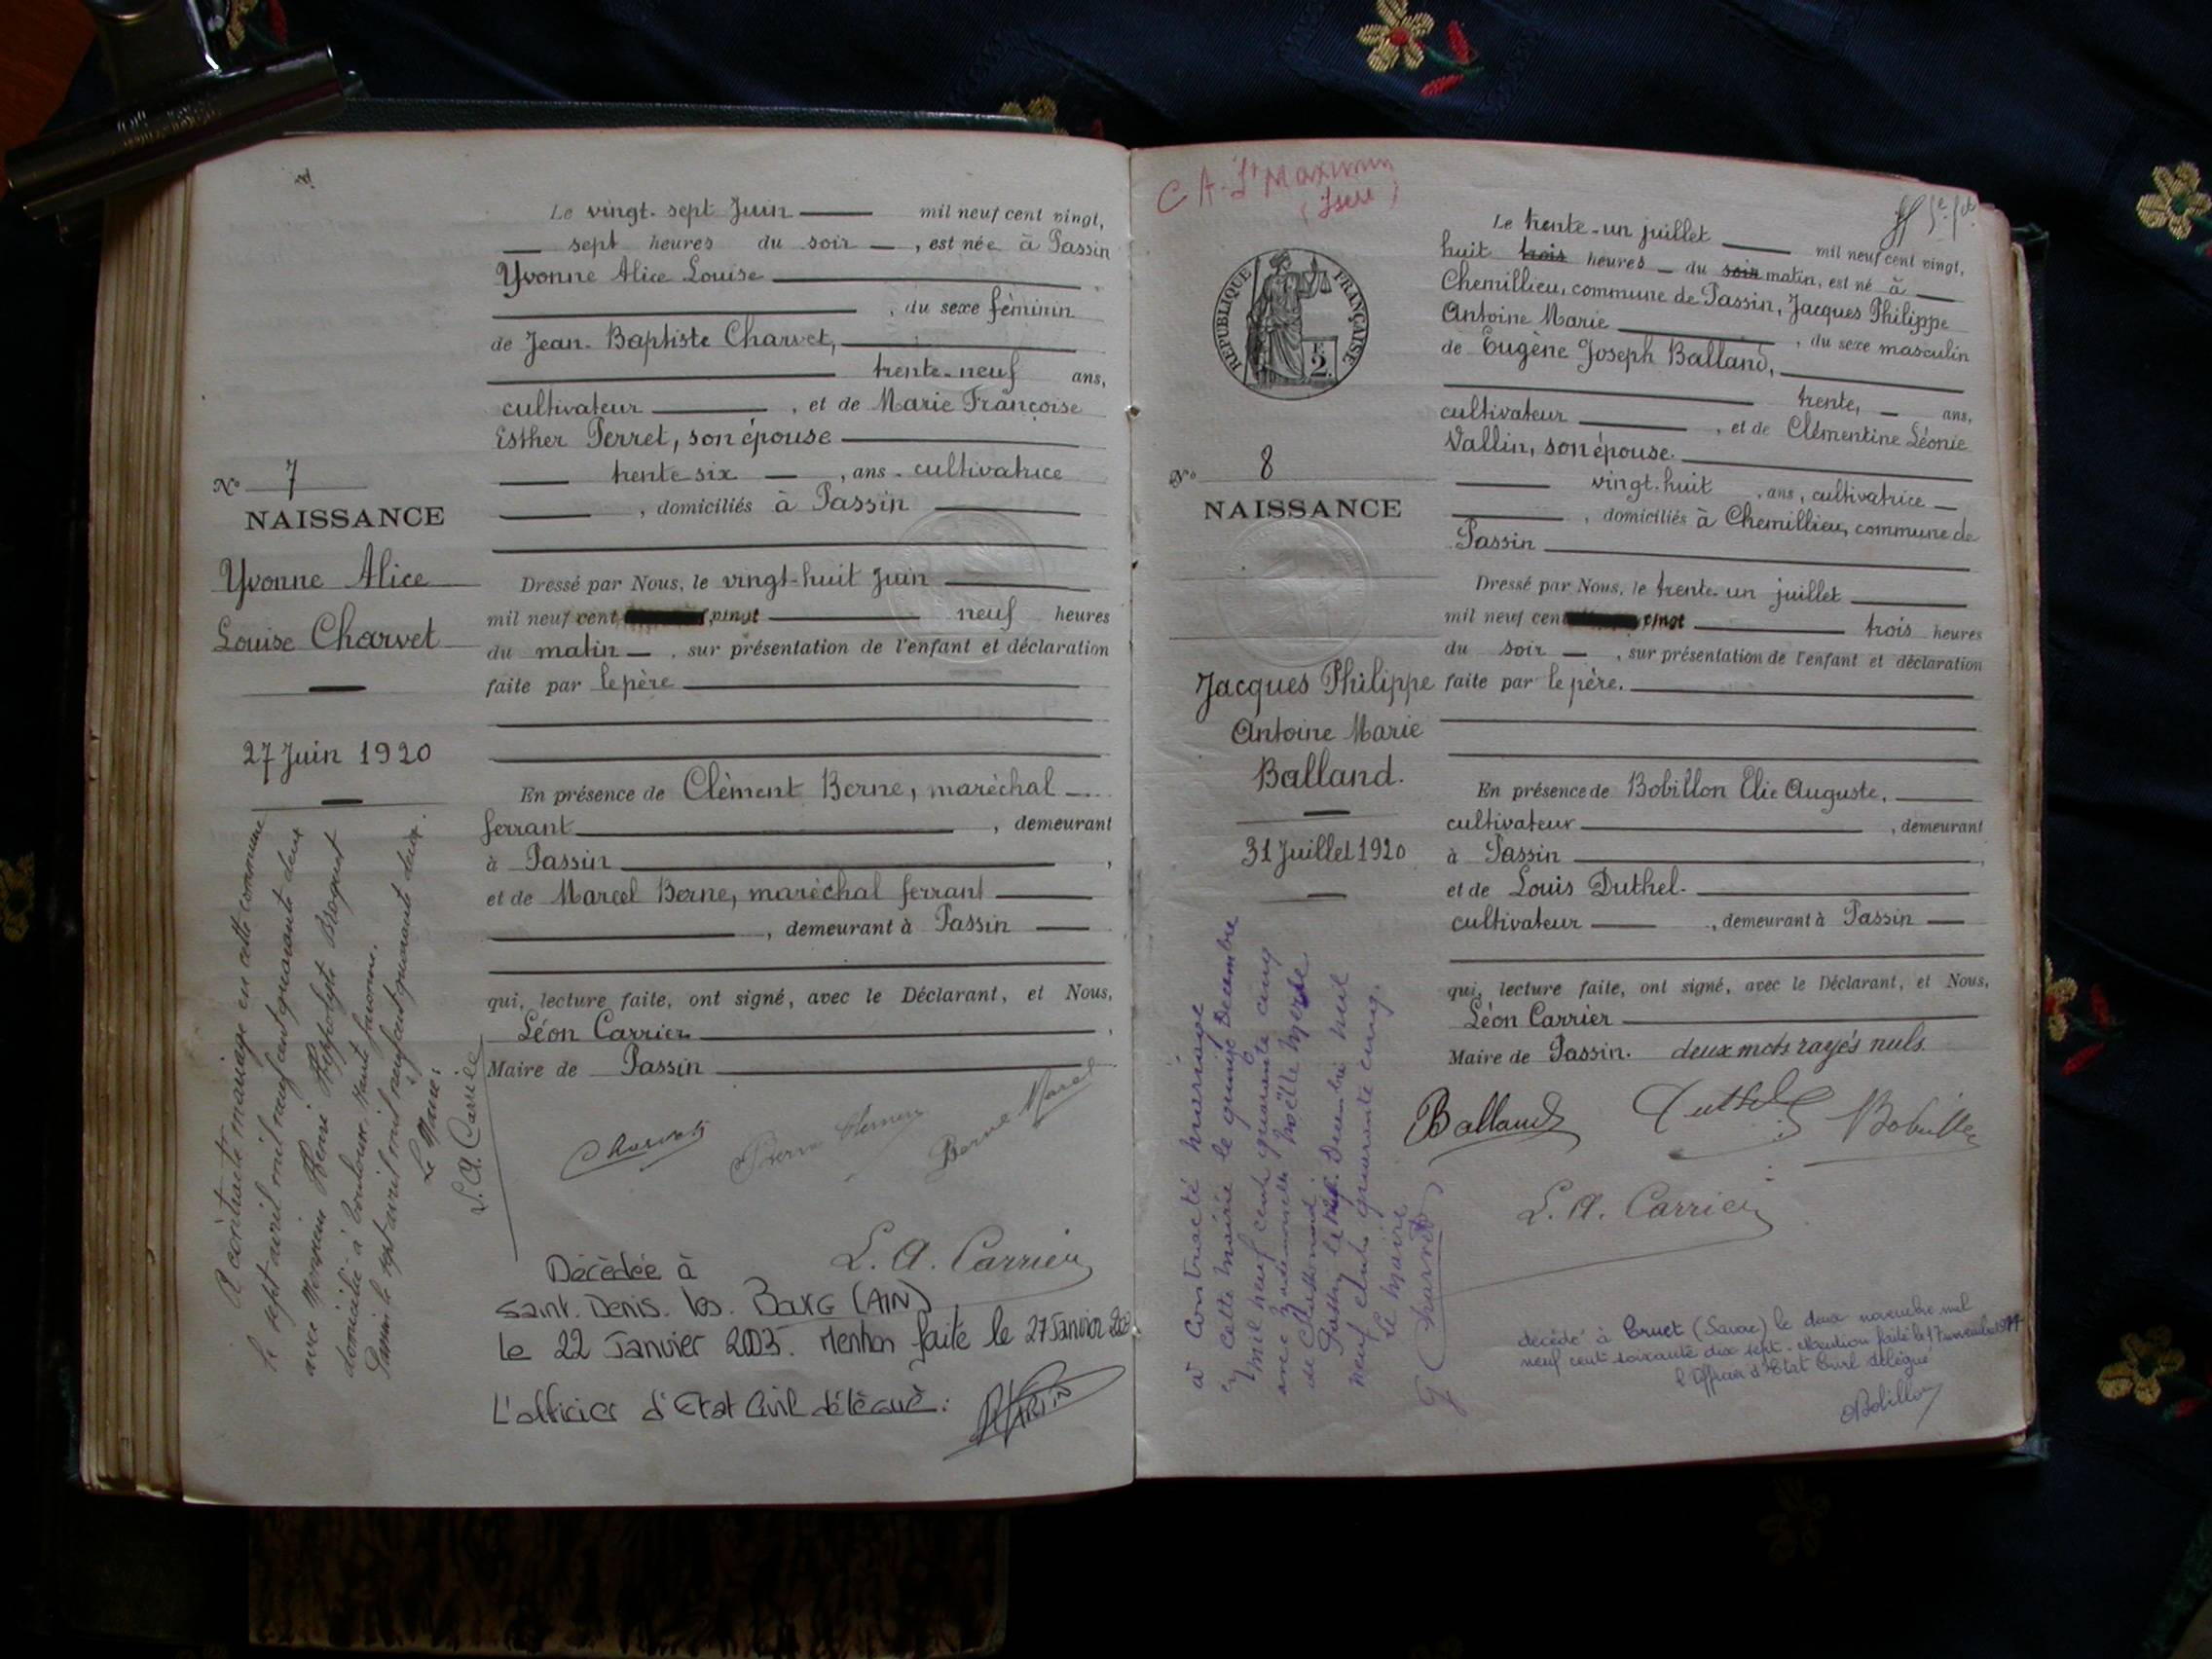 Le vingt-sept Juin mil neuf cent vingt,
sept heures du soir, est née à Passin
Yvonne Alice Louise
, du sexe féminin
de Jean-Baptiste Charvet,
trente-neuf ans,
cultivateur, et de Marie Françoise
Esther Perret, son épouse
trente six, ans. cultivatrice
, domiciliés à Passin
N° 7
NAISSANCE
Yvonne Alice
Louise Charvet
27 Juin 1920
Dressé par Nous, le vingt-huit Juin
mil neuf cent vingt neuf heures
du matin, sur présentation de l'enfant et déclaration
faite par le père
En présence de Clément Berne, maréchal
ferrant, demeurant
à Passin,
et de Marcel Berne, maréchal ferrant
, demeurant à Passin
qui, lecture faite, ont signé, avec le Déclarant, et Nous,
Léon Carrier,
Maire de Passin
A contracté mariage en cette commune
le sept avril mil neuf cent quarante deux
avec Monsieur Henri Hippolyte
domicilié à Toulouse, Haute Garonne.
Passin le sept avril mil neuf cent quarante deux.
Le Maire:
L. A. Carrier
Charvet
Berne Marcel
L. A. Carrier
Décédée à
Saint. Denis. les. Bourg (AIN)
le 22 Janvier 2003. Mention faite le 27 Janvier
L'officier d'Etat Civil délégué:
C A. St Maximin
(Isère)
REPUBLIQUE FRANÇAISE
2
Le trente-un juillet mil neuf cent vingt,
huit trois heures du soir matin, est né à
Chemillieu, commune de Passin, Jacques Philippe
Antoine Marie, du sexe masculin
de Eugène Joseph Balland,
trente, ans,
cultivateur, et de Clémentine Léonie
Vallin, son épouse.
vingt-huit, ans, cultivatrice
, domiciliés à Chemillieu, commune de
Passin
N° 8
NAISSANCE
Jacques Philippe
Antoine Marie
Balland.
31 Juillet 1920
Dressé par Nous, le trente-un juillet
mil neuf cent vingt trois heures
du soir, sur présentation de l'enfant et déclaration
faite par le père.
En présence de Bobillon Elie Auguste,
cultivateur, demeurant
à Passin,
et de Louis Duthel.
cultivateur, demeurant à Passin
qui, lecture faite, ont signé, avec le Déclarant, et Nous,
Léon Carrier
Maire de Passin. deux mots rayés nuls.
à contracté mariage
en cette mairie le quinze Décembre
mil neuf cent quarante cinq
avec Mademoiselle Noëlle
Passin le Décembre mil
neuf cent quarante cinq.
Le Maire
Balland Duthel Bobillon
L. A. Carrier
décédé à Cruet (Savoie) le deux novembre mil
neuf cent soixante dix sept. Mention faite le 17 novembre 1977
l'Officier d'Etat Civil délégué
Bobillon